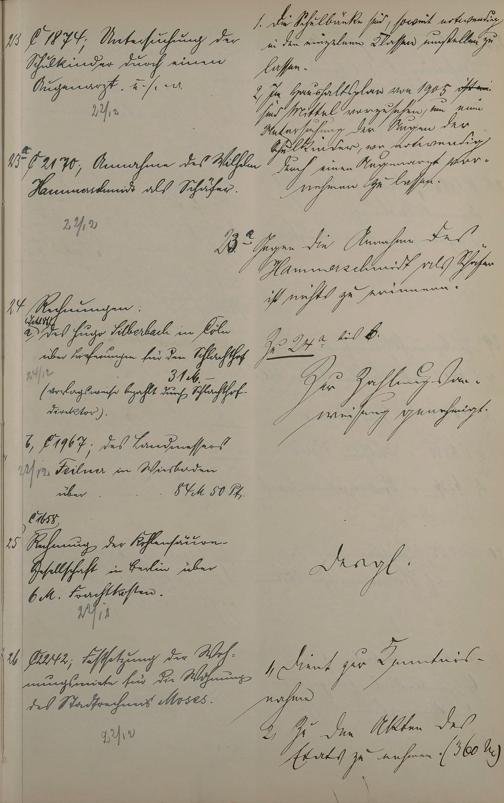 23 C 1874, Untersuchung der
Schulkinder durch einen
Augenarzt. u. s. w.
22/12
1. Die Schulbänke sind, soweit notwendig
in den einzelnen Klassen umstellen zu
lassen.
2, Im Haushaltsplan von 1905
sind Mittel vorzusehen, um eine
Untersuchung der Augen der
Schulkinder, wo notwendig
durch einen Augenarzt vor-
nehmen zu lassen.
23a C 2170, Annahme des Wilhelm
Hammerschmidt als Schäfer.
22/12
23a Gegen die Annahme des
Hammerschmidt als Schäfer
ist nichts zu erinnern.
24 Rechnungen:
a, des Hugo Silberbach in Cöln
über Lieferungen für den Schlachthof
31 M. –
24/12
(vorlagsweise bezahlt durch Schlachthof-
direktor).
Zu 24a bis b.
Zur Zahlungsan-
weisung genehmigt.
b, C 1967; des Landmessers
22/12 in Wiesbaden
über 84 M 50 Pf.
C 1858,
25 Rechnung der Kohlensäure-
Gesellschaft in Berlin über
6 M. Frachtkosten.
22/12
Desgl.
26 C 2242; Festsetzung der Woh-
nungsmiete für die Wohnung
des Stadtrechners Moses.
22/12
1, Dient zur Kenntnis-
nahme
2, Zu den Akten des
Etats zu nehmen. (360 M)